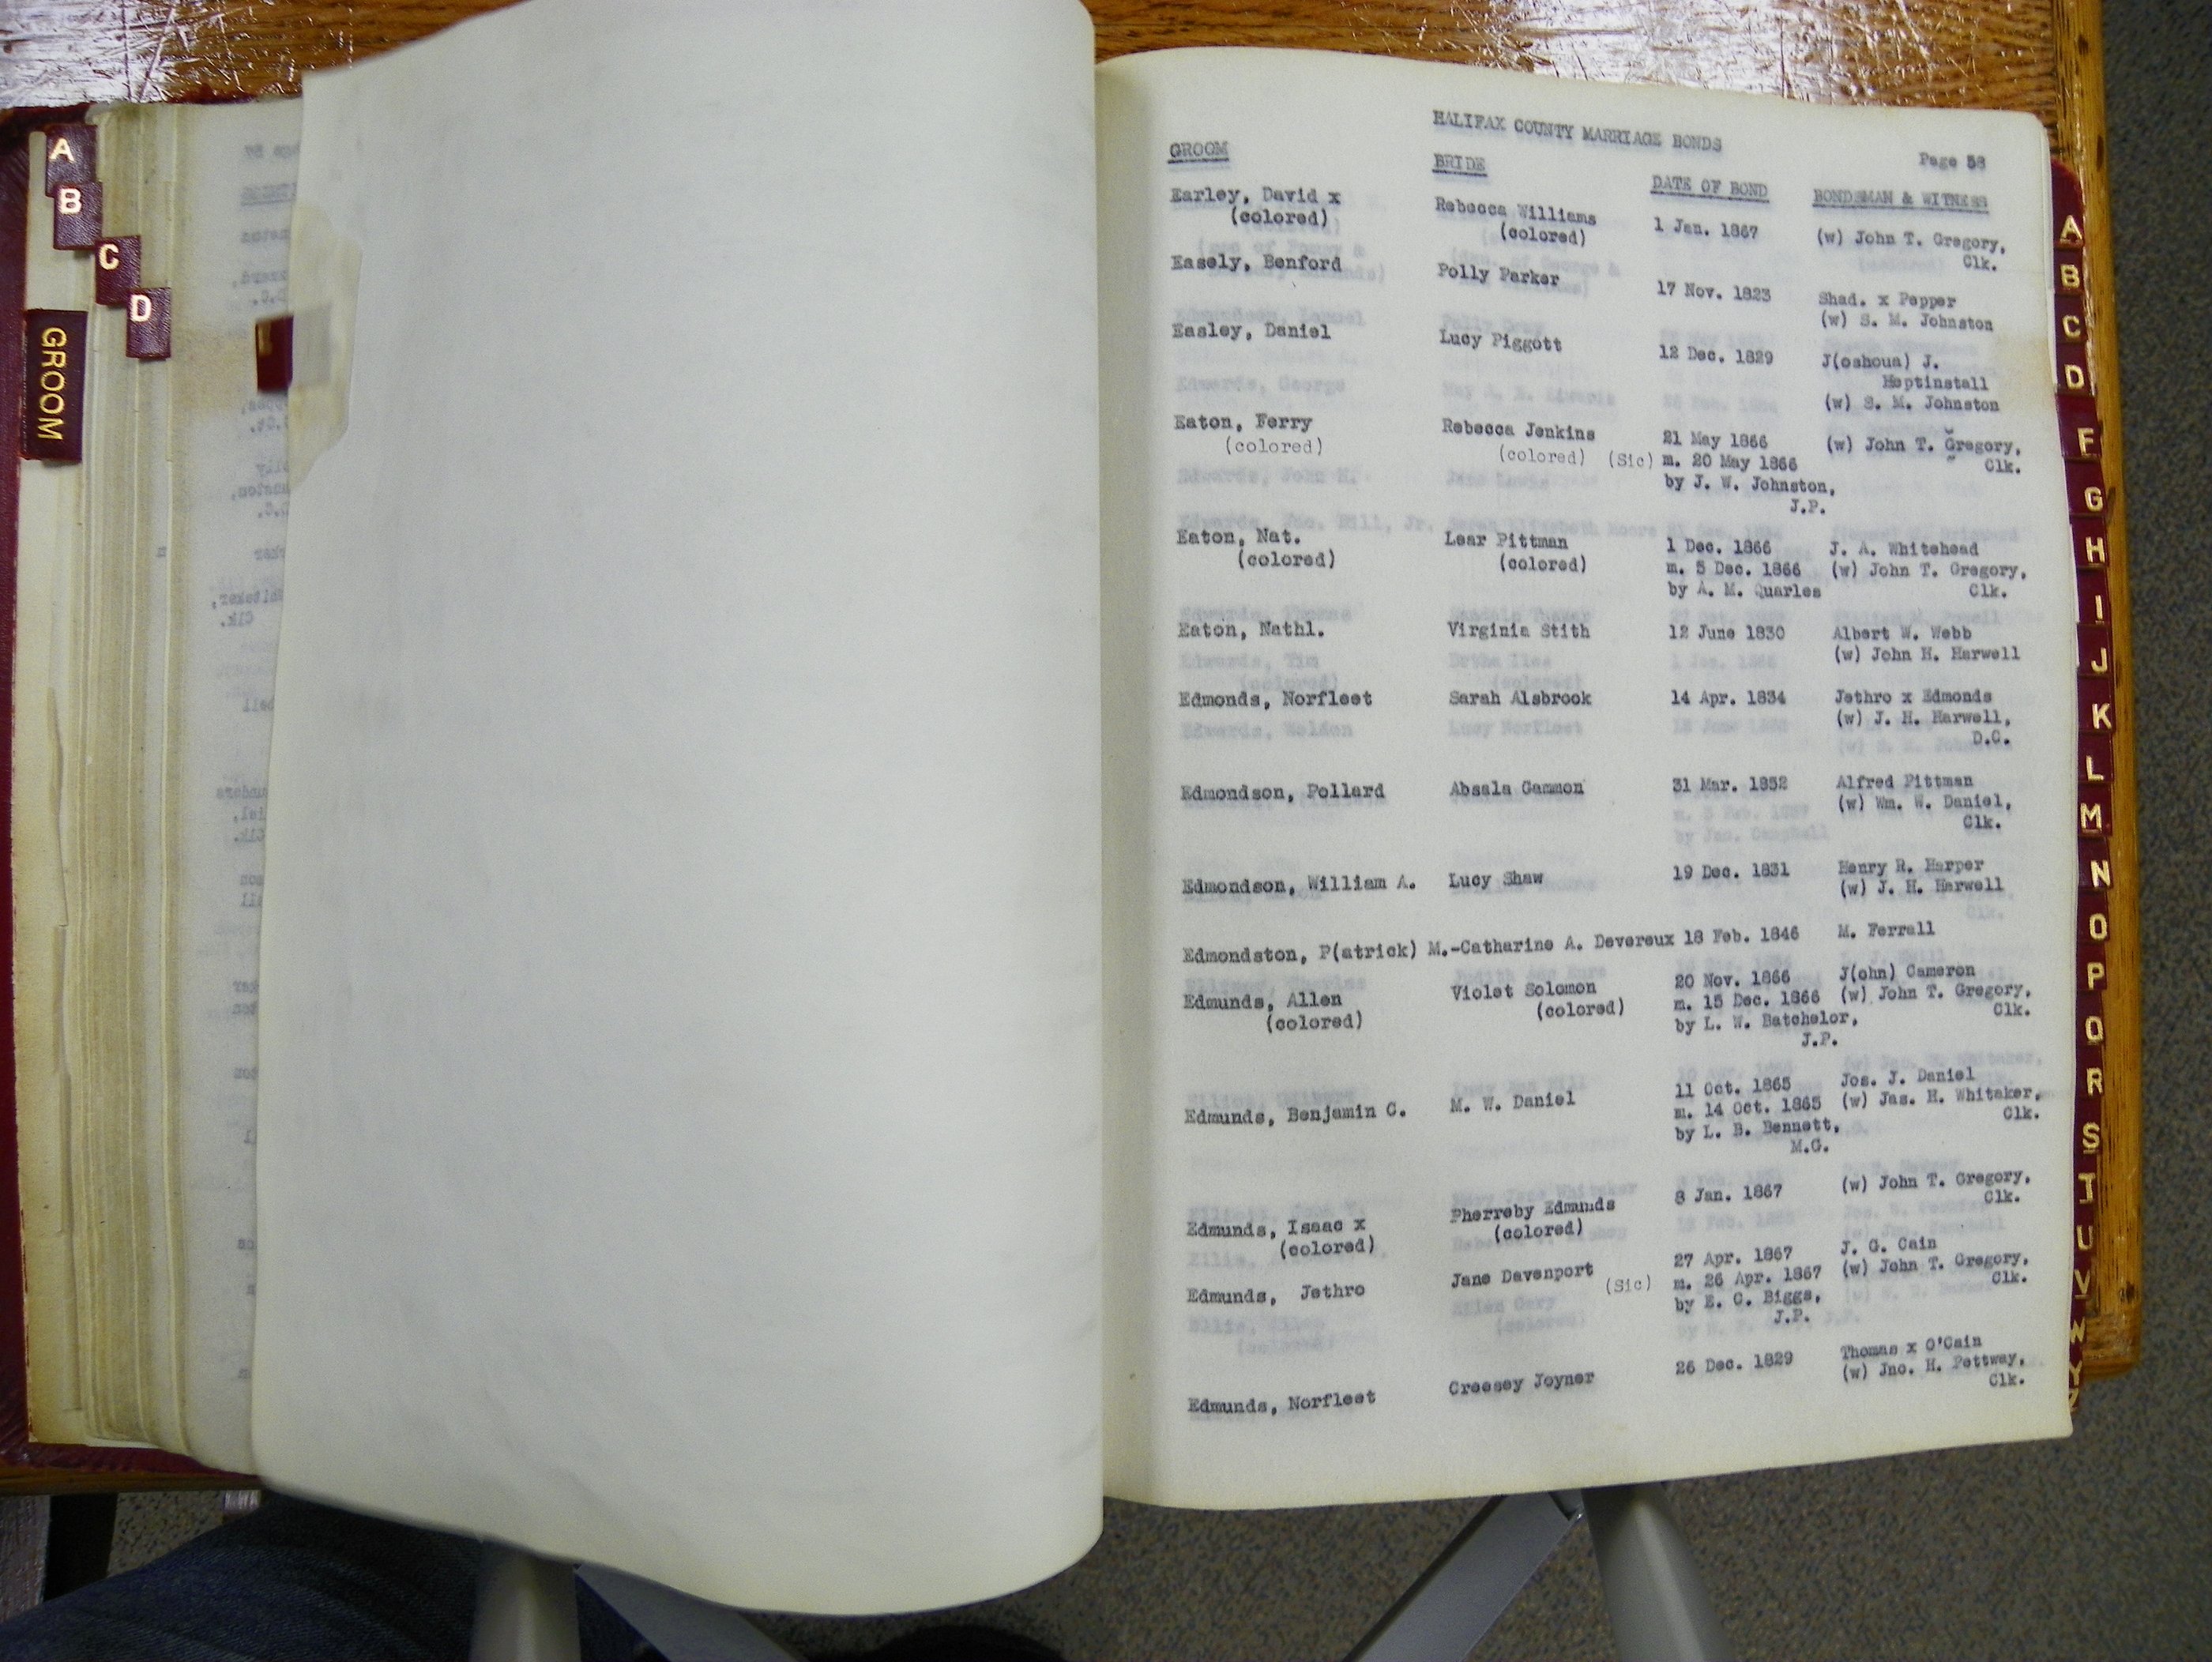 A
B
C
D
GROOM
HALIFAX COUNTY MARRIAGE BONDS
Page 58
GROOM BRIDE DATE OF BOND BONDSMAN & WITNESS
Earley, David x Rebecca Williams 1 Jan. 1867 (w) John T. Gregory,
(colored) (colored) Clk.
Easely, Benford Polly Parker 17 Nov. 1823 Shad. x Pepper
(w) S. M. Johnston
Easley, Daniel Lucy Piggott 12 Dec. 1829 J(oshoua) J.
Heptinstall
(w) S. M. Johnston
Eaton, Ferry Rebecca Jenkins 21 May 1866 (w) John T. Gregory,
(colored) (colored) (Sic) m. 20 May 1866 Clk.
by J. W. Johnston,
J.P.
Eaton, Nat. Lear Pittman 1 Dec. 1866 J. A. Whitehead
(colored) (colored) m. 5 Dec. 1866 (w) John T. Gregory,
by A. M. Quarles Clk.
Eaton, Nathl. Virginia Stith 12 June 1830 Albert W. Webb
(w) John H. Harwell
Edmonds, Norfleet Sarah Alsbrook 14 Apr. 1834 Jethro x Edmonds
(w) J. H. Harwell,
D.C.
Edmondson, Pollard Absala Gammon 31 Mar. 1852 Alfred Pittman
(w) Wm. W. Daniel,
Clk.
Edmondson, William A. Lucy Shaw 19 Dec. 1831 Henry R. Harper
(w) J. H. Harwell
Edmondston, P(atrick) M.-Catharine A. Devereux 18 Feb. 1846 M. Ferrall
Edmunds, Allen Violet Solomon 20 Nov. 1866 J(ohn) Cameron
(colored) (colored) m. 15 Dec. 1866 (w) John T. Gregory,
by L. W. Batchelor, Clk.
J.P.
Edmunds, Benjamin C. M. W. Daniel 11 Oct. 1865 Jos. J. Daniel
m. 14 Oct. 1865 (w) Jas. H. Whitaker,
by L. B. Bennett, Clk.
M.G.
Edmunds, Isaac x Pherreby Edmunds 8 Jan. 1867 (w) John T. Gregory,
(colored) (colored) Clk.
Edmunds, Jethro Jane Davenport (Sic) 27 Apr. 1867 J. G. Cain
m. 26 Apr. 1867 (w) John T. Gregory,
by E. C. Biggs, Clk.
J.P.
Edmunds, Norfleet Creesey Joyner 26 Dec. 1829 Thomas x O'Cain
(w) Jno. H. Pettway,
Clk.
A
B
C
D
F
G
H
I
J
K
L
M
N
O
P
Q
R
S
T
U
V
W
Y